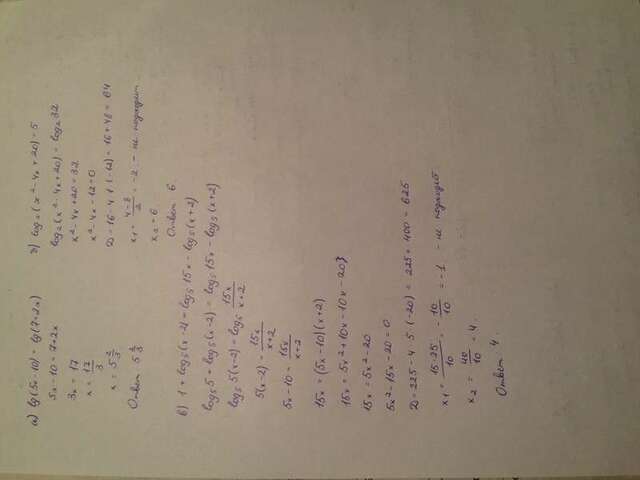 а) lg(5x-10) = lg(7+2x)
5x-10 = 7+2x
3x = 17
x = 17/3
x = 5 2/3
Ответ 5 2/3
б) log₂(x²-4x+20) = 5
log₂(x²-4x+20) = log₂32
x²-4x+20 = 32
x²-4x-12=0
D=16-4·1·(-12) = 16+48 = 64
x₁ = (4-8)/2 = -2 - не подходит
x₂ = 6
Ответ 6.
в) 1+log₅(x-2) = log₅15x - log₅(x+2)
log₅5 + log₅(x-2) = log₅15x - log₅(x+2)
log₅5(x-2) = log₅ 15x/(x+2)
5(x-2) = 15x/(x+2)
5x-10 = 15x/(x+2)
15x = (5x-10)(x+2)
15x = 5x²+10x-10x-20}
15x = 5x²-20
5x²-15x-20=0
D=225-4·5·(-20) = 225+400 = 625
x₁ = (15-25)/10 = -10/10 = -1 - не подходит.
x₂ = 40/10 = 4.
Ответ 4.